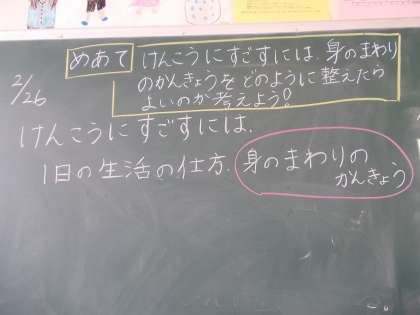 2/26
めあて
けんこうにすごすには、身のまわり
のかんきょうをどのように整えたら
よいのか考えよう!
けんこうにすごすには、
1日の生活の仕方、身のまわりの
かんきょう